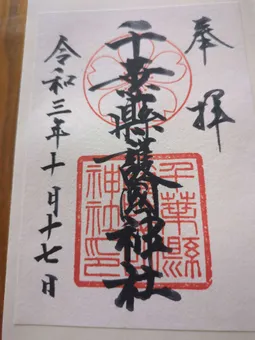 奉拝
千葉縣護國神社
令和三年十月十七日
千葉縣
神社印